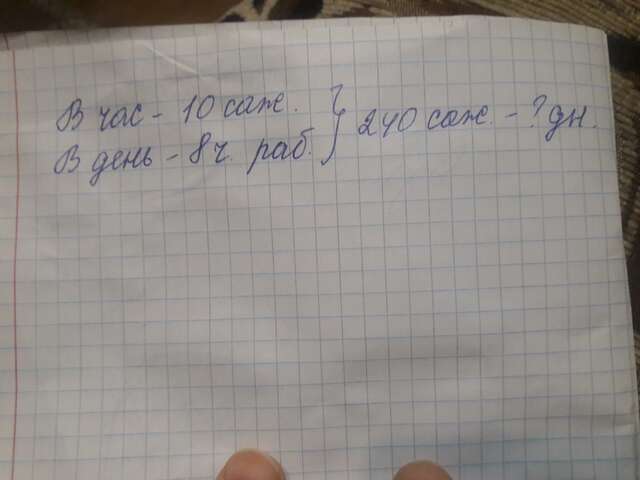 В час - 10 саж. } 240 саж. - ? дн.
В день - 8 ч. раб.